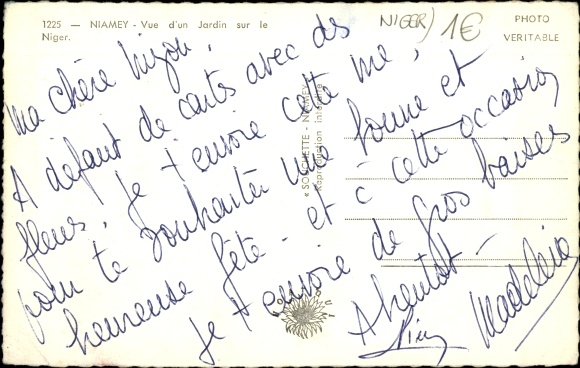 1225. — NIAMEY - Vue d'un Jardin sur le
Niger.
NIGER) 1€
PHOTO
VERITABLE
« SOUCHETTE - NIAMEY
Reproduction interdite
Ma chère
A defaut de cartes avec des
fleurs, je t'envoie cette vue,
pour te souhaiter une bonne et
heureuse fête - et à cette occasion
je t'envoie de gros baisers
A bientôt -
Madeleine